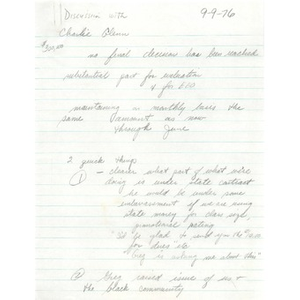 Discussion with 9-9-76
Charlie Glenn
no final decision has been reached
substantial part for evaluation
& for
maintaining a monthly basis the
same amount as now
through June
2 quick things
① - clearer what part of what we're
doing is under state contract
he would be under some
if we are using
state money for class size,
"I'd be glad to send you the
for dues etc
is asking me about this"
② they raised issue of us &
the black community